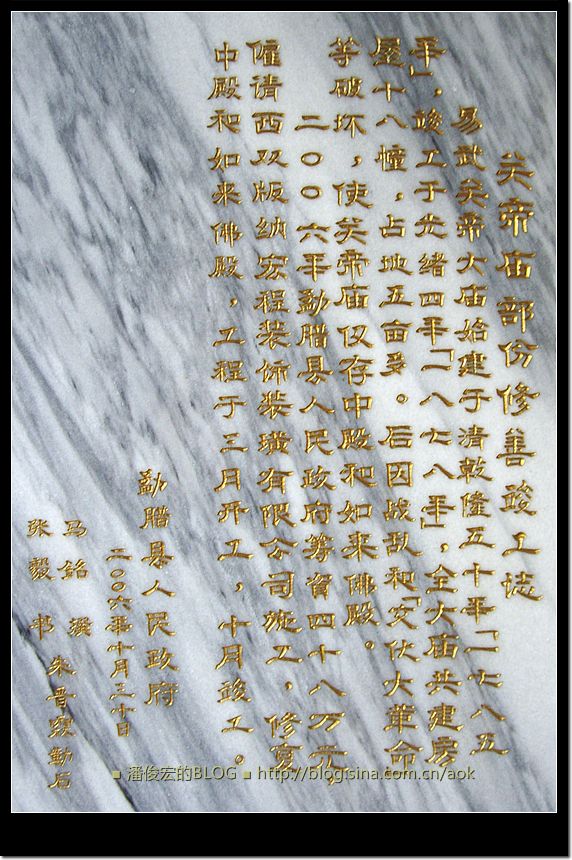 关帝庙部份修善竣工志
易武关帝大庙始建于清乾隆五十年「一七八五
年」，竣工于光绪四年「一八七八年」，全大庙共建房
屋十八幢，占地五亩多。后因战乱和「文化大革命
等破坏，使关帝庙仅存中殿和如来佛殿。
二〇〇六年勐腊县人民政府筹资四十八万元，
僱请西双版纳宏程装饰装璜有限公司施工，修复
中殿和如来佛殿，工程于三月开工，十月竣工。
勐腊县人民政府
二〇〇六年十月三十日
马铭 撰
张毅 书 朱晋 勒石
潘俊宏的BLOG http://blogisina.com.cn/aok